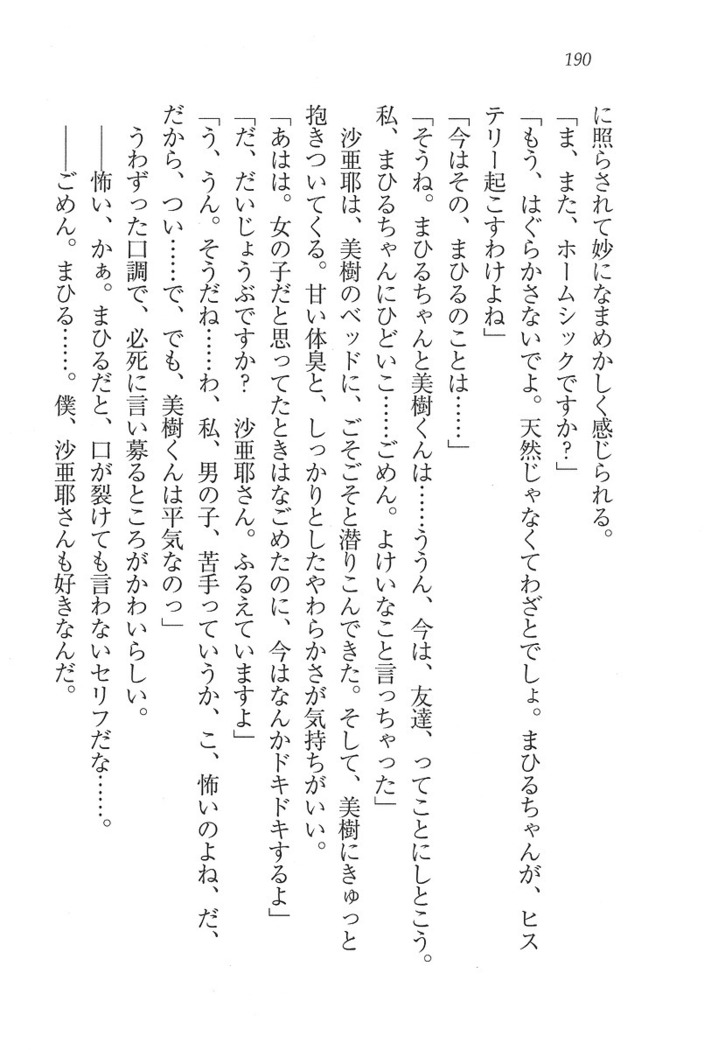 190
に照らされて妙になまめかしく感じられる。
「ま、また、ホームシックですか？」
「もう、はぐらかさないでよ。天然じゃなくてわざとでしょ。まひるちゃんが、ヒス
テリー起こすわけよね」
「今はその、まひるのことは……」
「そうね。まひるちゃんと美樹くんは……ううん、今は、友達、ってことにしとこう。
私、まひるちゃんにひどいこ……ごめん。よけいなこと言っちゃった」
沙亜耶は、美樹のベッドに、ごそごそと潜りこんできた。そして、美樹にきゅっと
抱きついてくる。甘い体臭と、しっかりとしたやわらかさが気持ちがいい。
「あはは。女の子だと思ってたときはなごめたのに、今はなんかドキドキするよ」
「だ、だいじょうぶですか？　沙亜耶さん。ふるえていますよ」
「う、うん。そうだね……わ、私、男の子、苦手っていうか、こ、怖いのよね、だ、
だから、つい……で、でも、美樹くんは平気なのっ」
うわずった口調で、必死に言い募るところがかわいらしい。
――怖い、かぁ。まひるだと、口が裂けても言わないセリフだな……。
――ごめん。まひる……。僕、沙亜耶さんも好きなんだ。